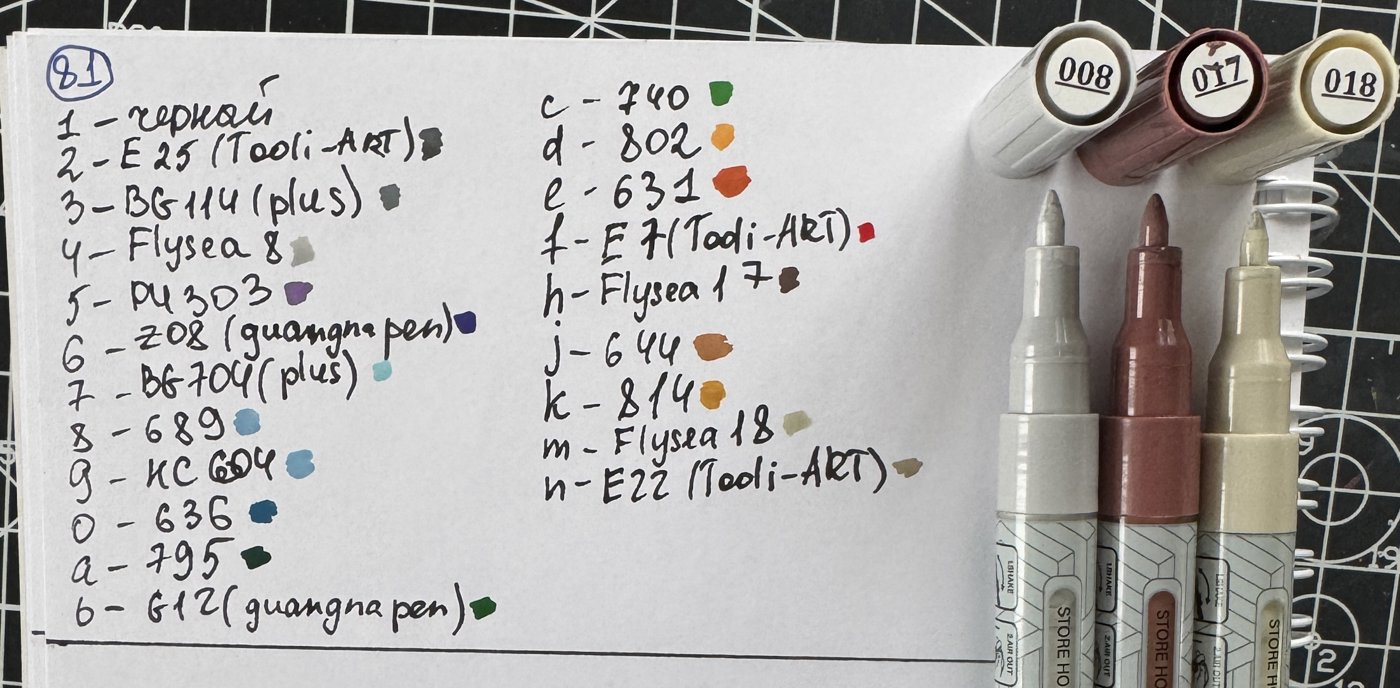 81
1 - черный
2 - E 25 (Tooli-ART)
3 - BG 114 (plus)
4 - Flysea 8
5 - РЧ 303
6 - Z08 (guangna pen)
7 - BG 704 (plus)
8 - 689
9 - КС 604
0 - 636
a - 795
b - G12 (guangna pen)
c - 740
d - 802
e - 631
f - E 7 (Tooli-ART)
h - Flysea 17
j - 644
k - 814
m - Flysea 18
n - E22 (Tooli-ART)
008
017
018
1.SHAKE
2.AIR OUT
STORE HO
1.SHAKE
2.AIR OUT
STORE HO
1.SHAKE
2.AIR OUT
STORE H